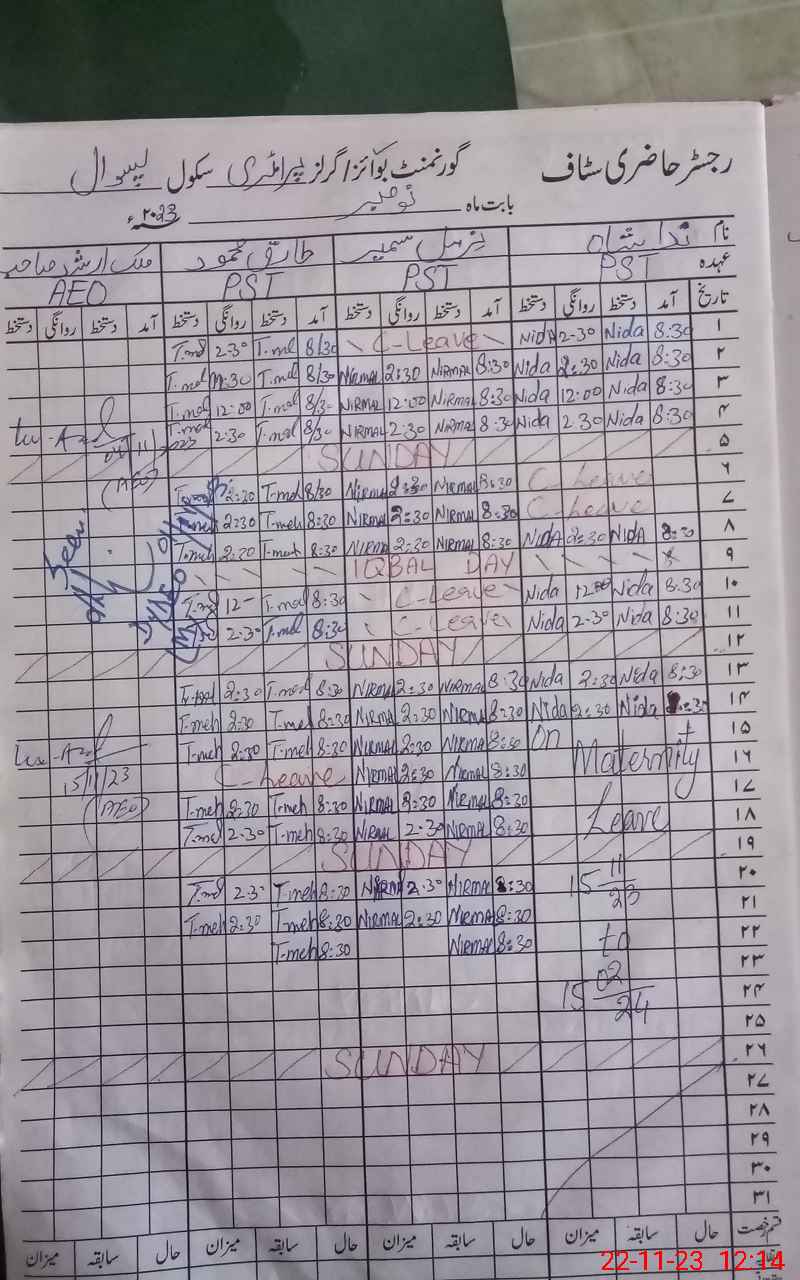 رجسٹر حاضری سٹاف گورنمنٹ بوائز/گرلز پرائمری سکول لپسوال
بابت ماہ نومبر ۲۰23ء
نام ندا شاہ نرمل سمیر طارق محمود ملک ارشد صاحب
عہدہ PST PST PST AEO
تاریخ آمد دستخط روانگی دستخط آمد دستخط روانگی دستخط آمد دستخط روانگی دستخط آمد دستخط روانگی دستخط
۱ 8:30 Nida 2-30 NidA C-Leave 8/30 T.md 2-30 T.md
۲ 8:30 Nida 2:30 Nida 8:30 NIRMAL 2:30 NIRMAL 8/30 T.md :30 T.md
۳ 8:30 Nida 12:00 Nida 8:30 NIRMAL 12:00 NIRMAL 8/30 T.md 12:00 T.md
۴ 8:30 Nida 2.30 Nida 8:30 NIRMAL 2:30 NIRMAL 8/30 T.md 2:30 T.md
۵ SUNDAY
۶ C-Leave 8:30 NIRMAL 2:30 NIRMAL 8/30 T-meh 2:30 (AEO)
۷ C-Leave 8:30 NIRMAL 2:30 NIRMAL 8:30 T-meh 2:30 T-meh Seen
۸ 8:30 NIDA 2:30 NIDA 8:30 NIRMAL 2:30 NIRMAL 8:30 T-meh 2:30 T-meh
۹ IQBAL DAY
۱۰ 8:30 Nida 12:00 Nida C-Leave 8:30 T-md 12- T-md
۱۱ 8:30 Nida 2-30 Nida C-Leave 8:30 T-md 2-30
۱۲ SUNDAY
۱۳ 8:30 Nida 2:30 Nida 8:30 NIRMAL 2:30 NIRMAL 8:30 T-md 2:30
۱۴ :30 Nida 2:30 Nida 8:30 NIRMAL 2:30 NIRMAL 8:30 T-meh 2:30 T-meh
۱۵ On Maternity 8:30 NIRMAL 2:30 NIRMAL 8:30 T-meh 2:30 T-meh
۱۶ 8:30 NIRMAL 2:30 NIRMAL C-Leave 15/11/23
۱۷ Leave 8:30 NIRMAL 2:30 NIRMAL 8:30 T-meh 2:30 T-meh (AEO)
۱۸ 8:30 NIRMAL 2:30 NIRMAL 8:30 T-meh 2-30 T-md
۱۹ SUNDAY
۲۰ 15 11/23 8:30 NIRMAL 2-30 NIRMAL 8:30 T-meh 2-30 T-md
۲۱ 8:30 NIRMAL 2:30 NIRMAL 8:30 T-meh 2:30 T-meh
۲۲ to 8:30 NIRMAL 8:30 T-meh
۲۳
۲۴ 15 02/24
۲۵
۲۶ SUNDAY
۲۷
۲۸
۲۹
۳۰
۳۱
قسم رخصت حال سابقہ میزان حال سابقہ میزان حال سابقہ میزان حال سابقہ میزان
22-11-23 12:14